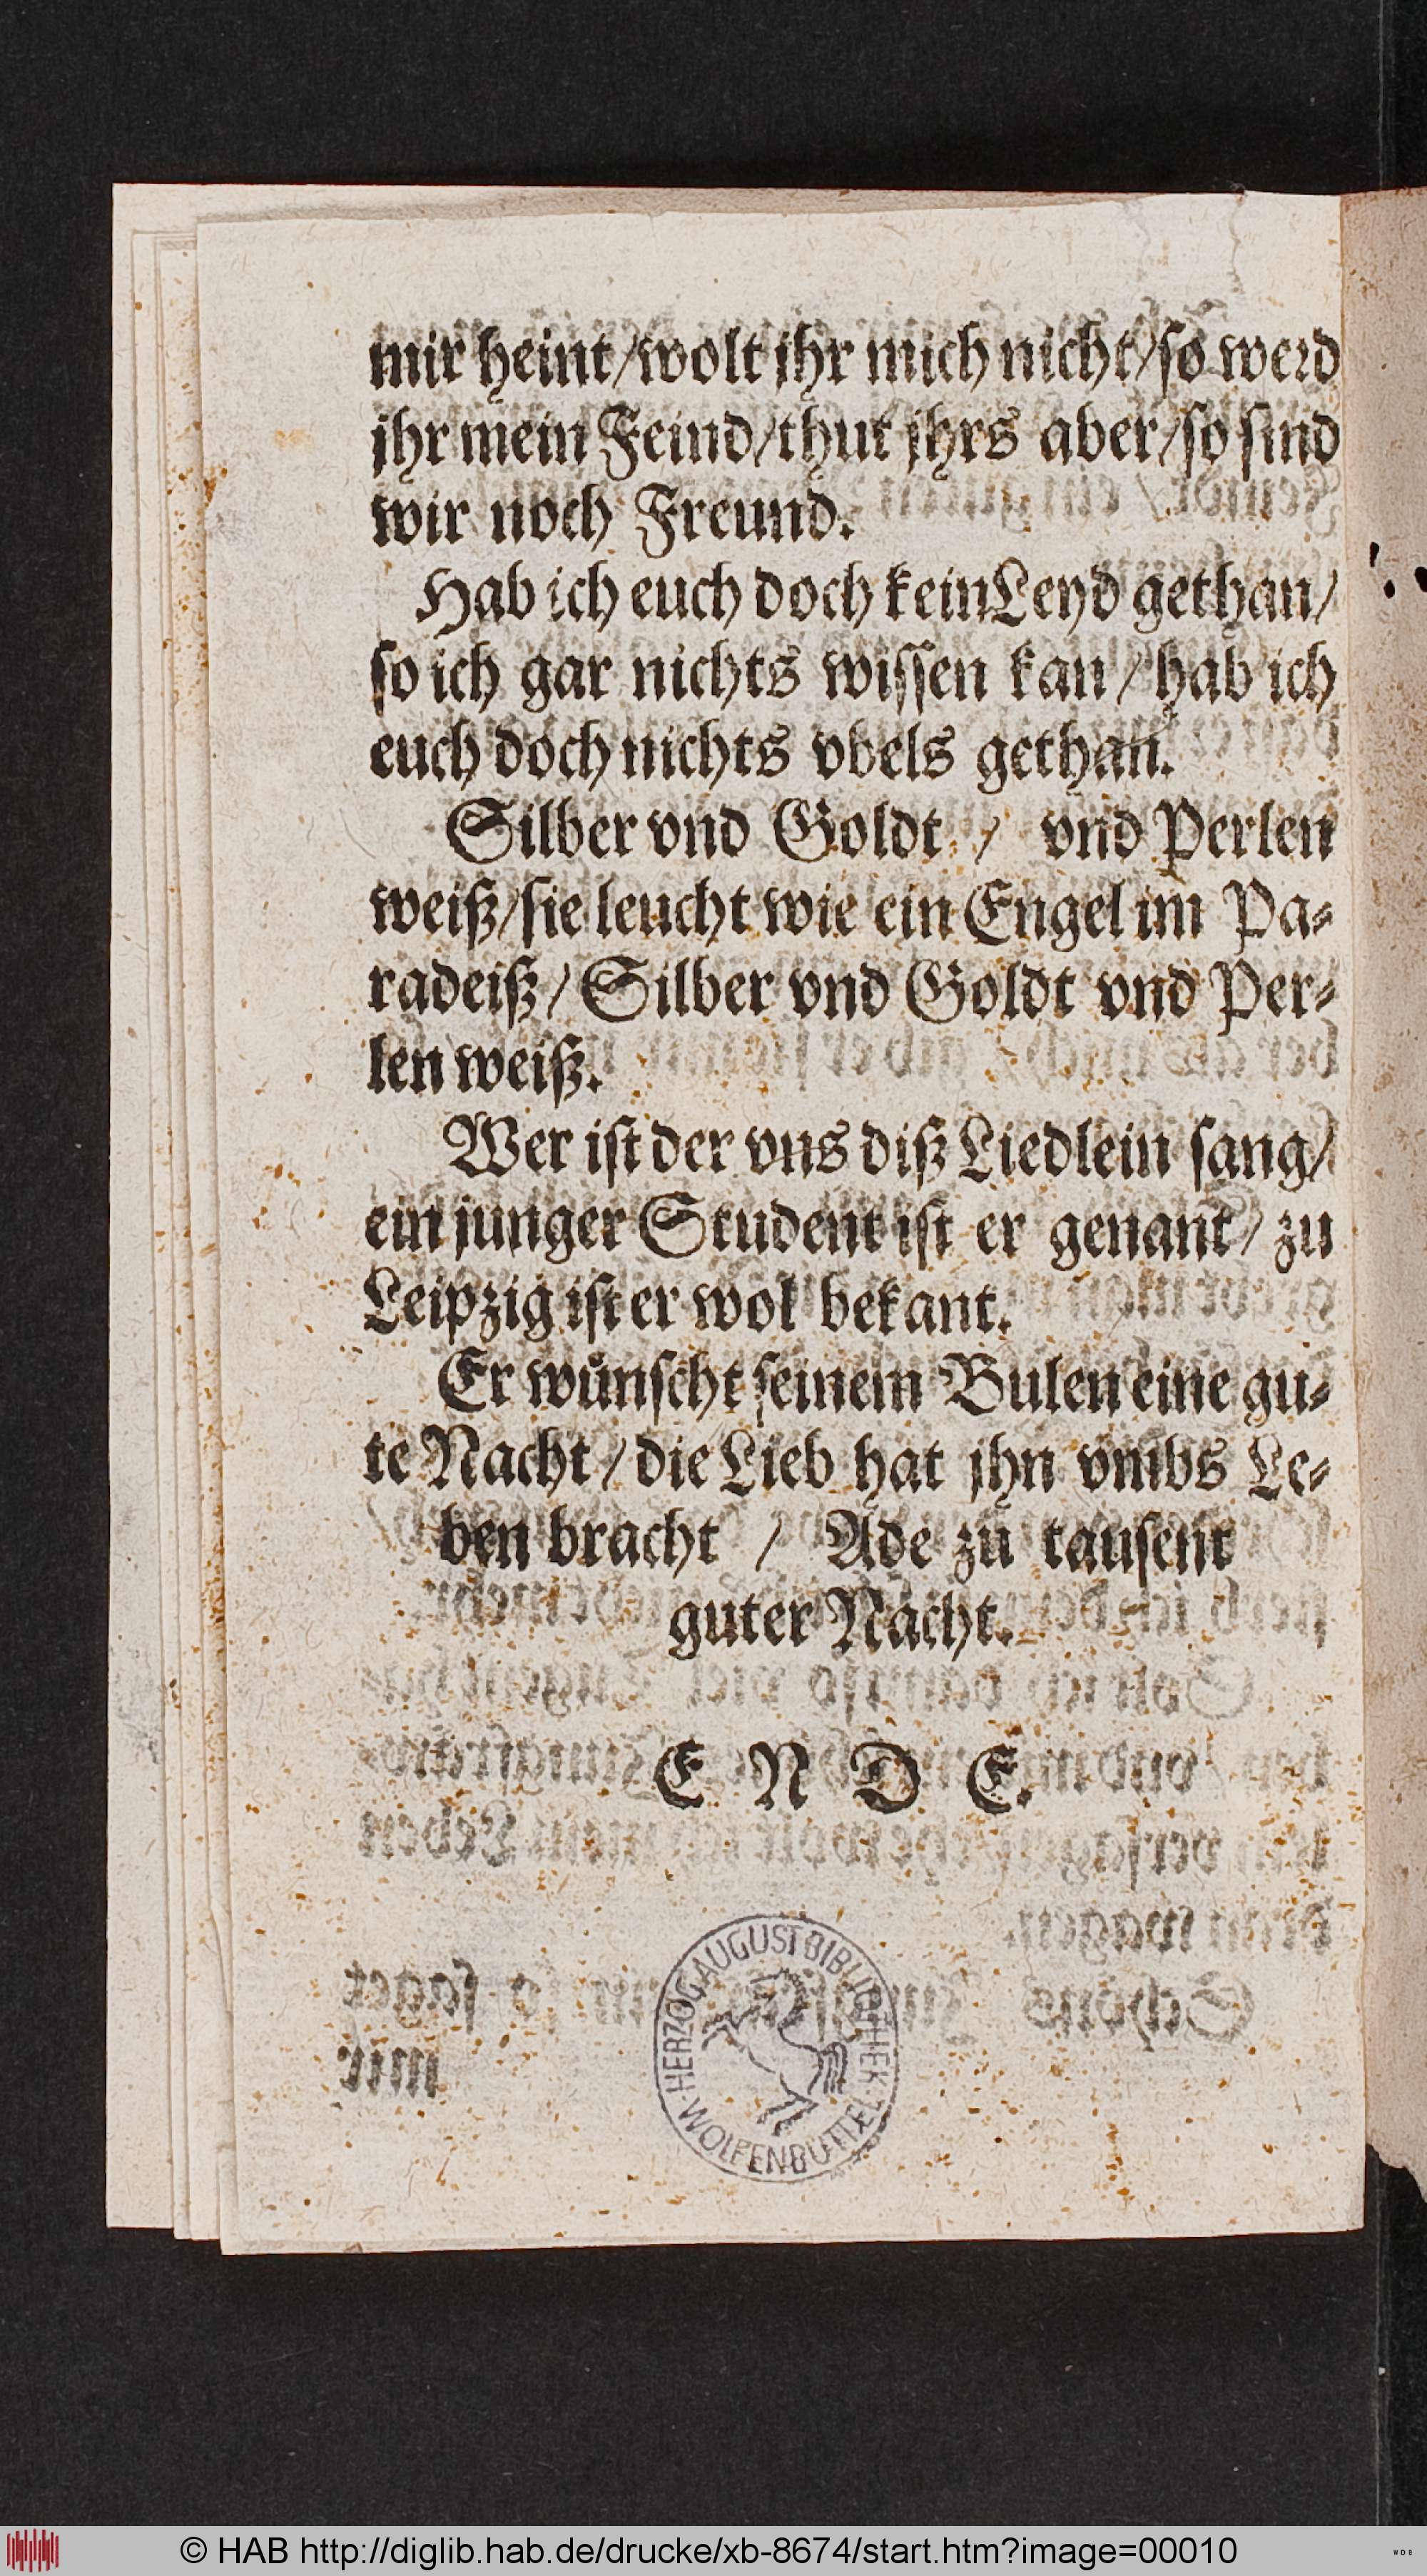 mir heint/wolt jhr mich nicht/so werd
jhr mein Feind/thut jhrs aber/so sind
wir noch Freund.
Hab ich euch doch kein Leyd gethan/
so ich gar nichts wissen kan/hab ich
euch doch nichts vbels gethan.
Silber vnd Goldt / vnd Perlen
weiß/sie leucht wie ein Engel im Pa-
radeiß/Silber vnd Goldt vnd Per-
len weiß.
Wer ist der vns diß Liedlein sang/
ein junger Student ist er genant/zu
Leipzig ist er wol bekant.
Er wuͤnscht seinem Bulen eine gu-
te Nacht/die Lieb hat jhn vmbs Le-
ben bracht / Ade zu tausent
guter Nacht.
E N D E.
HERZOG AUGUST BIBLIOTHEK
WOLFENBÜTTEL
© HAB http://diglib.hab.de/drucke/xb-8674/start.htm?image=00010
WDB